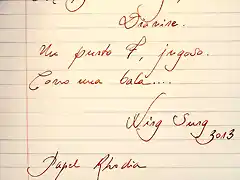 Un punto F, jugoso.
Como una bala....
Wing Sung
3013
Papel Rhodia